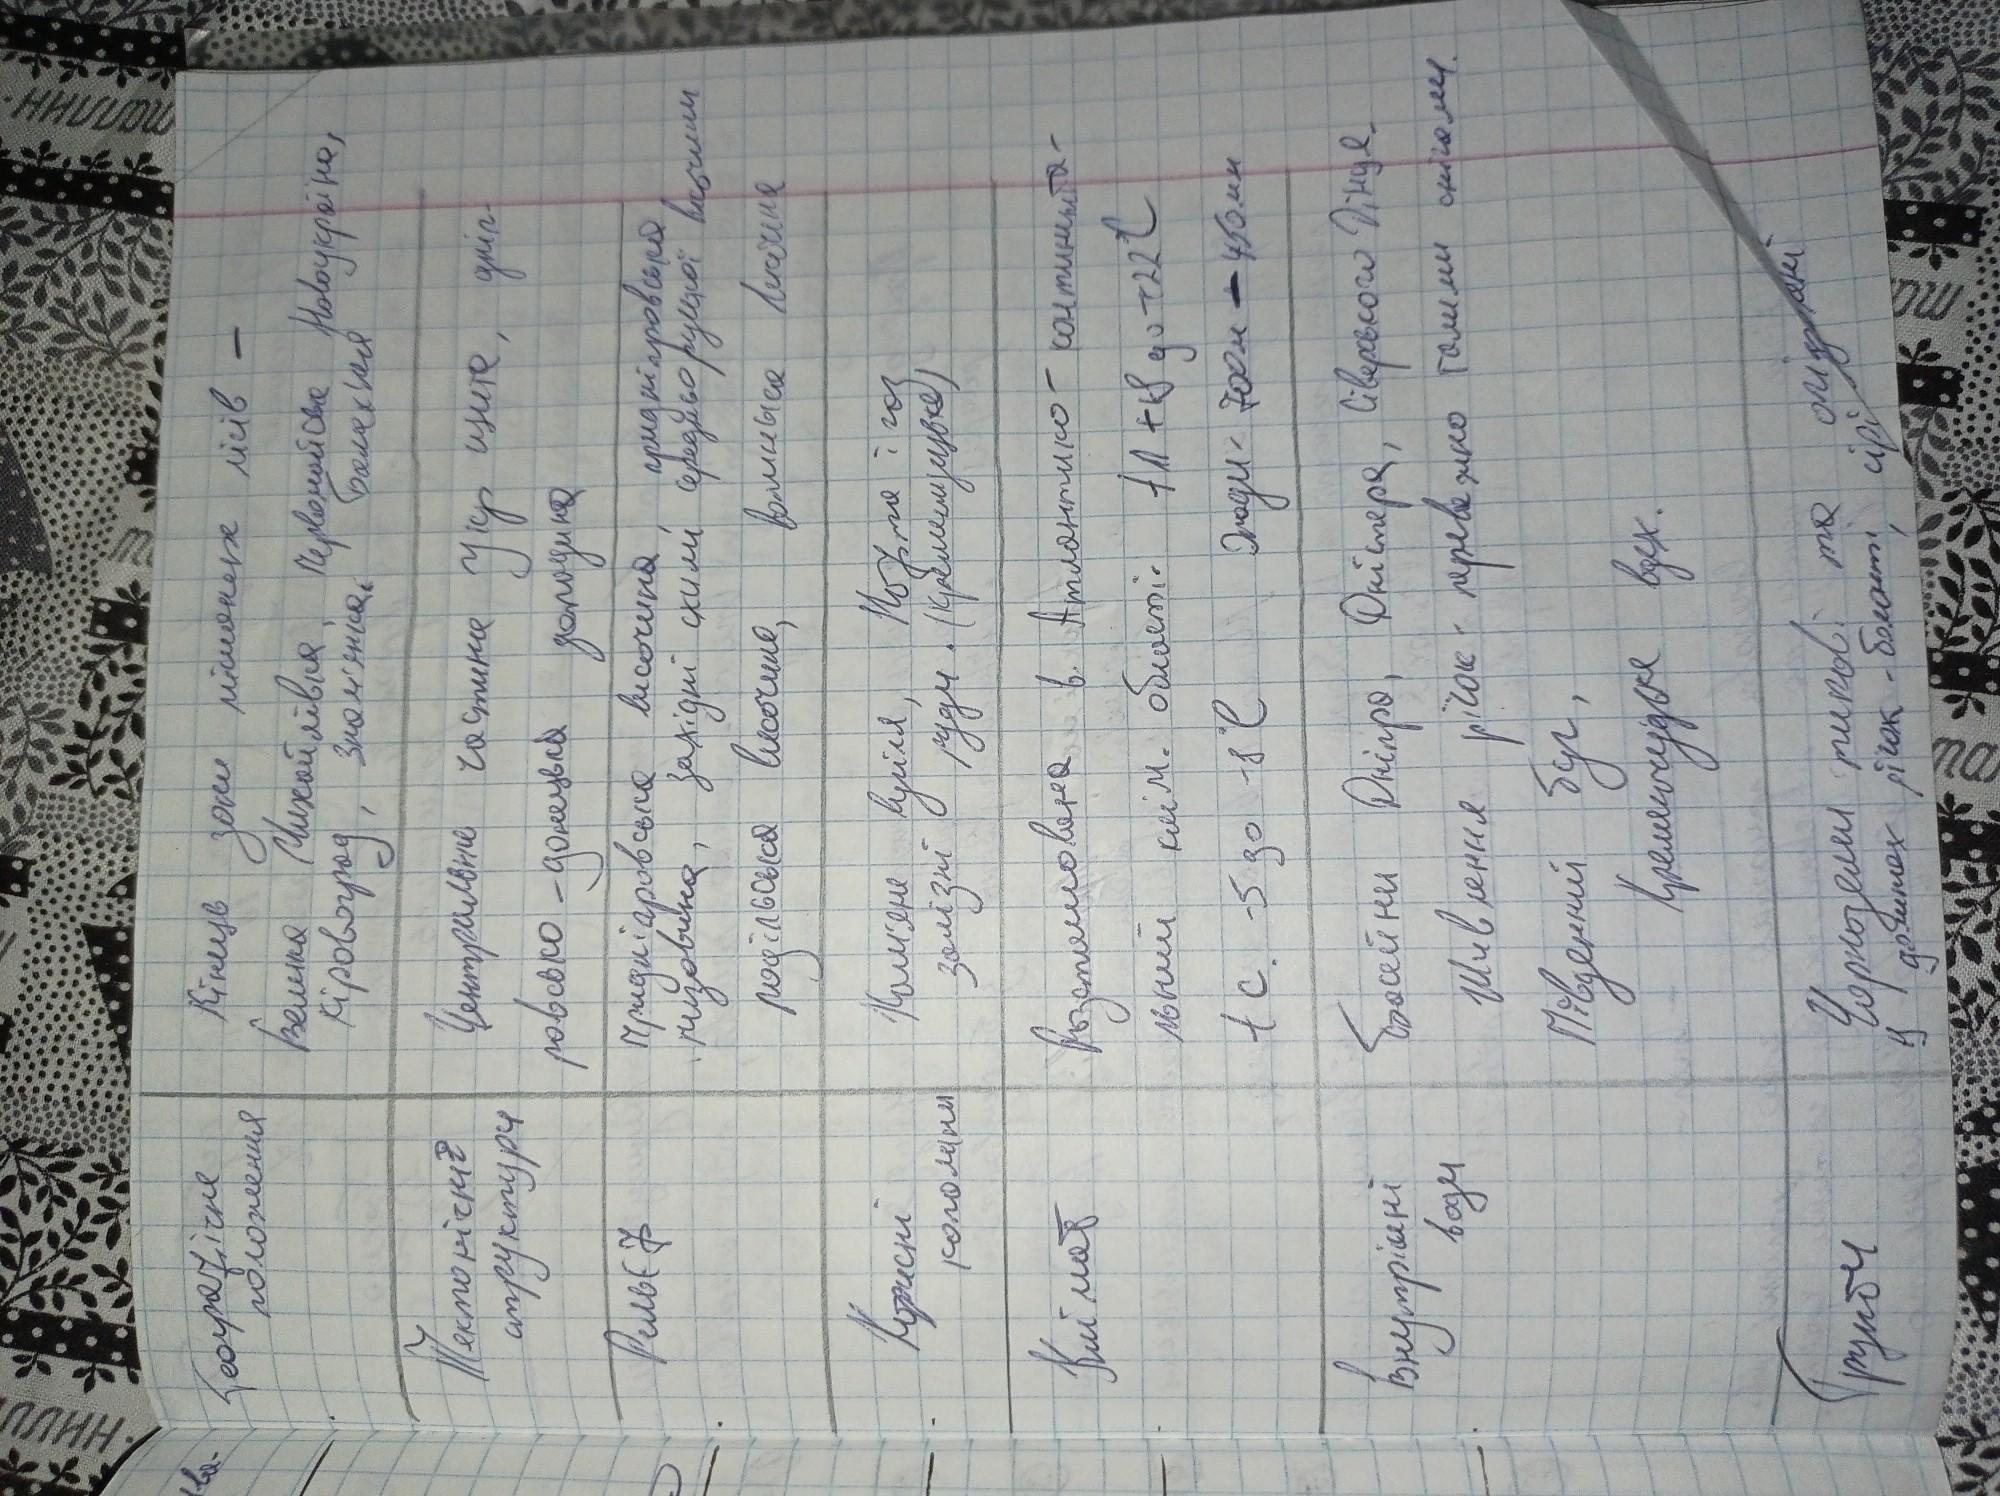 Географічне
положення
Кінець зони мішаних лісів –
Велика Михайлівка, Первомайськ Новоукраїна,
Кіровоград, Знам'янка, Балаклія
Тектонічні
структури
Центральна частина Укр щита, дніп-
ровсько-донецька западина
Рельєф
Придніпровська височина, придніпровська
низовина, західні схили середньоруської височини
подільська височина, волинська височина
Корисні
копалини
Кам'яне вугілля, Нафта і газ
залізні руди. (Кременчувке)
Клімат
Розташована в Атлантико-континента-
льній клім. області. t Л +18 до +22°C
t С. -5 до -8°C Опади. 700мм – 450мм
Внутрішні
води
Басейни Дніпра, Дністера, Сіверського Дінця.
Живлення річок - переважно талими снігами.
Південний Буг,
Кременчуцьке вдсх.
Грунти
Чорноземи типові та опідзолені
У долинах річок - болотні, сірі